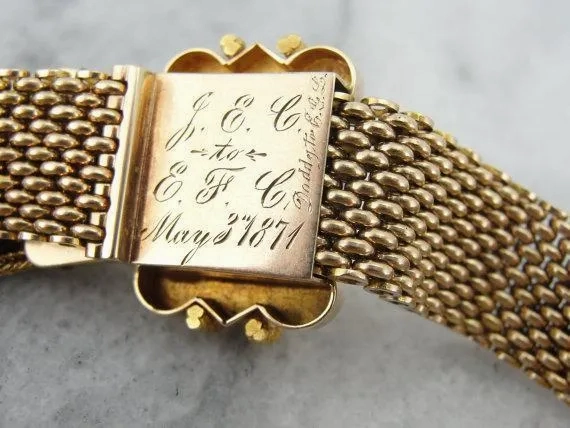 J. E. C.
to
E. F. C,
May 3rd 1871
Daddy to E. E. L.